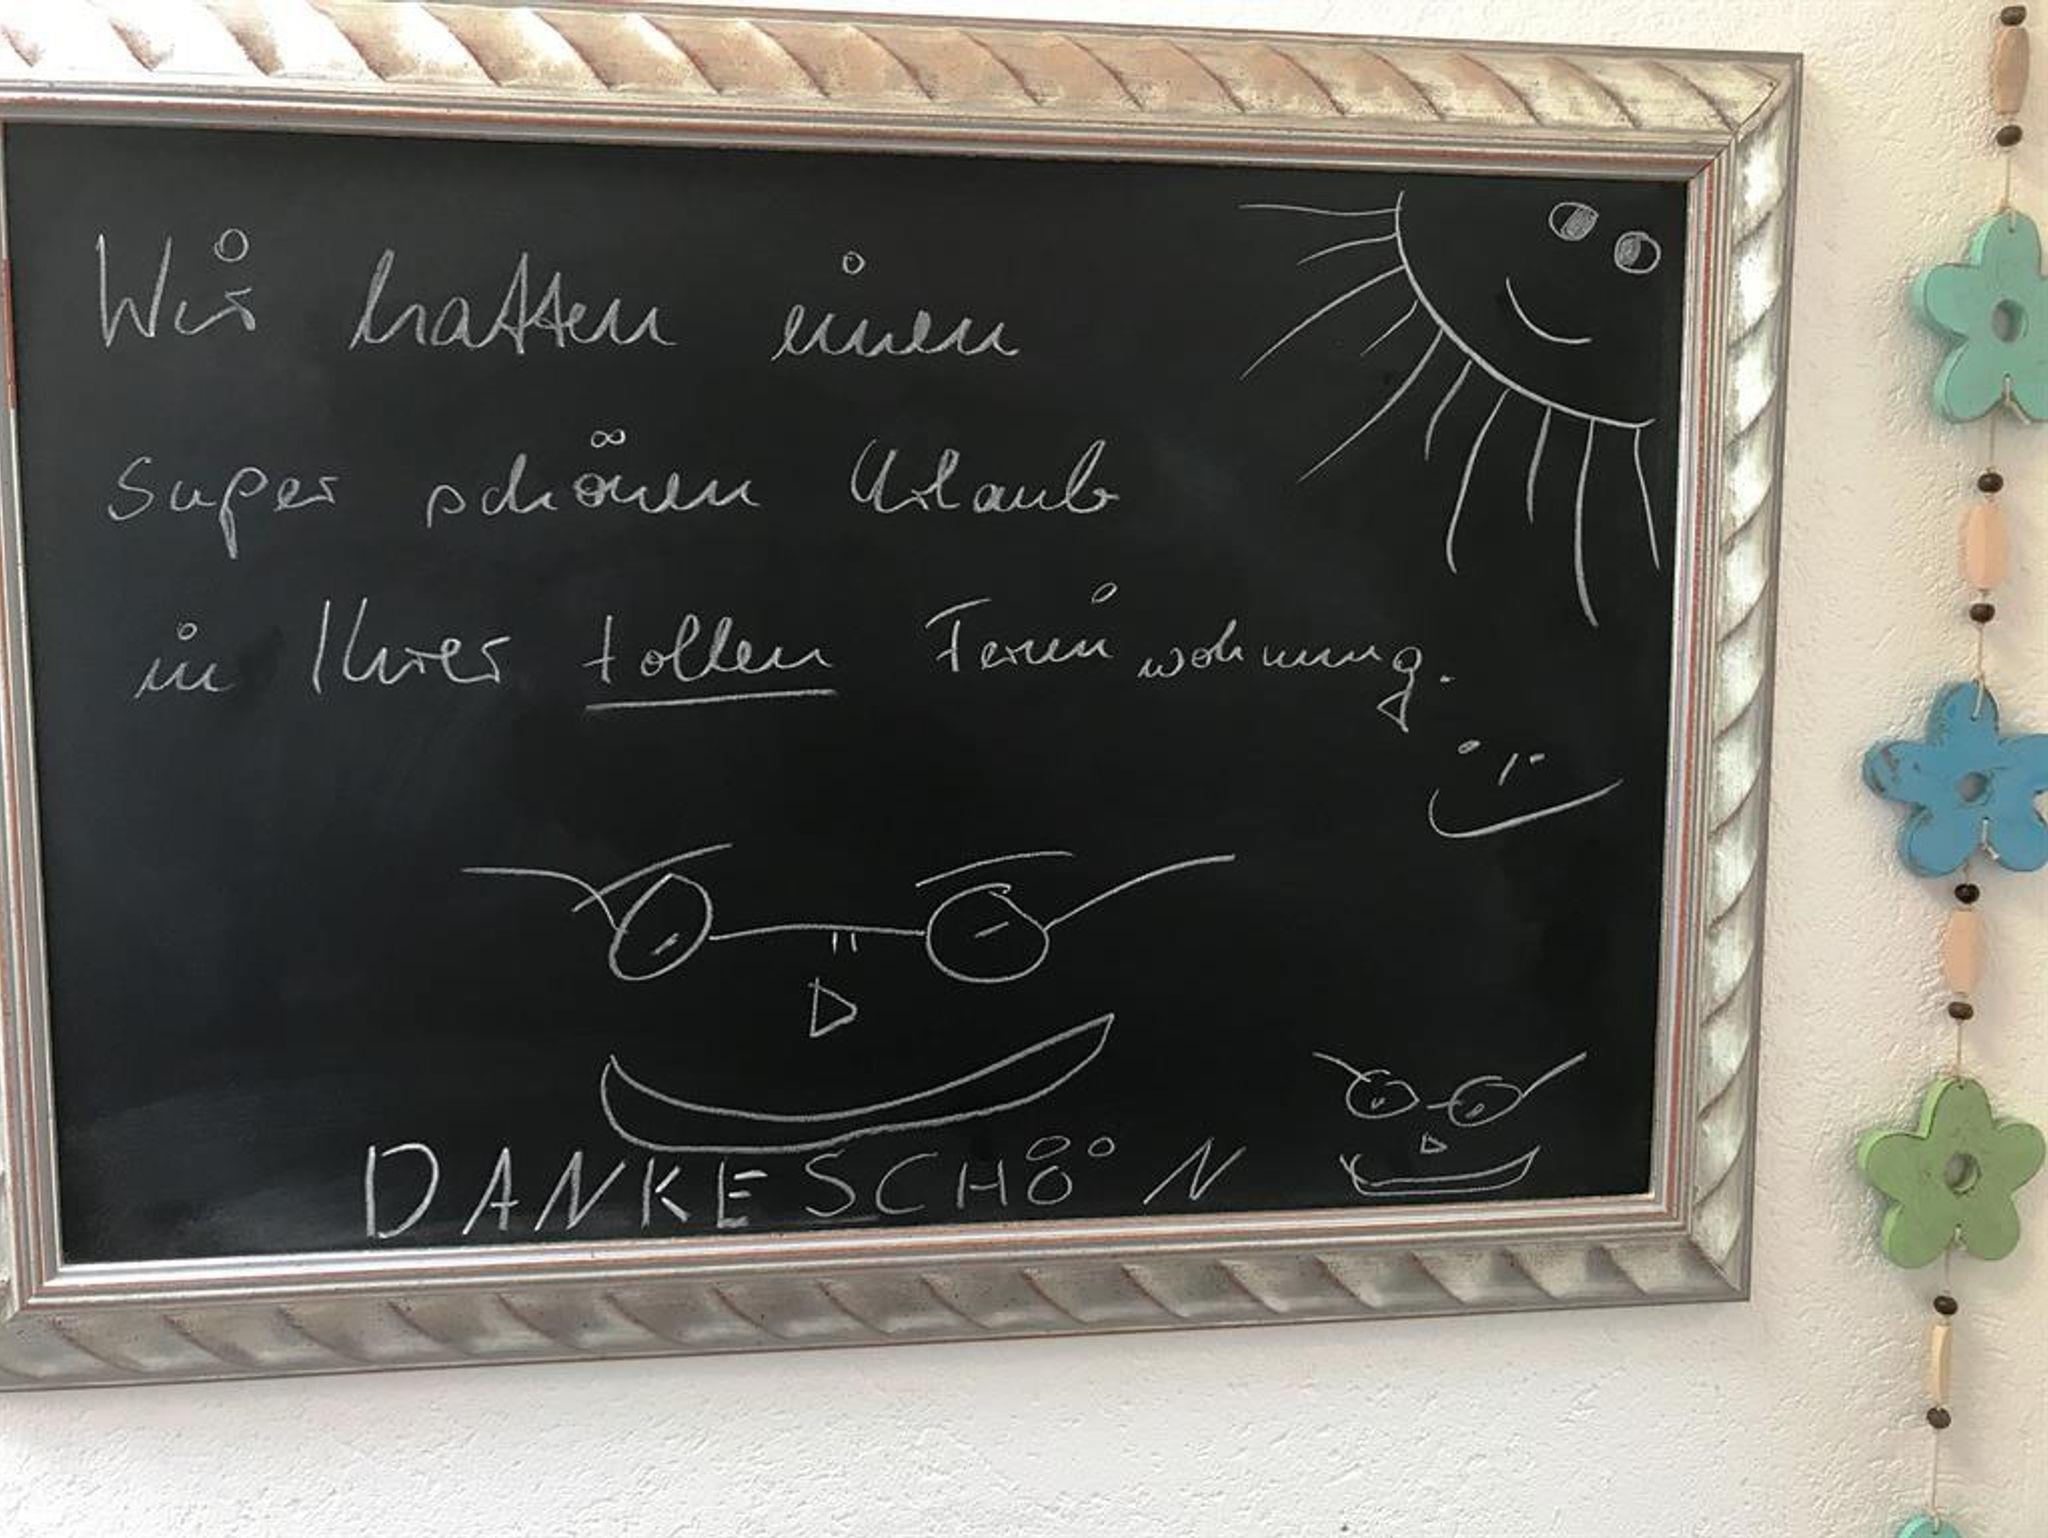 Wir hatten einen
super schönen Urlaub
in Ihrer tollen Ferienwohnung.
DANKESCHÖN